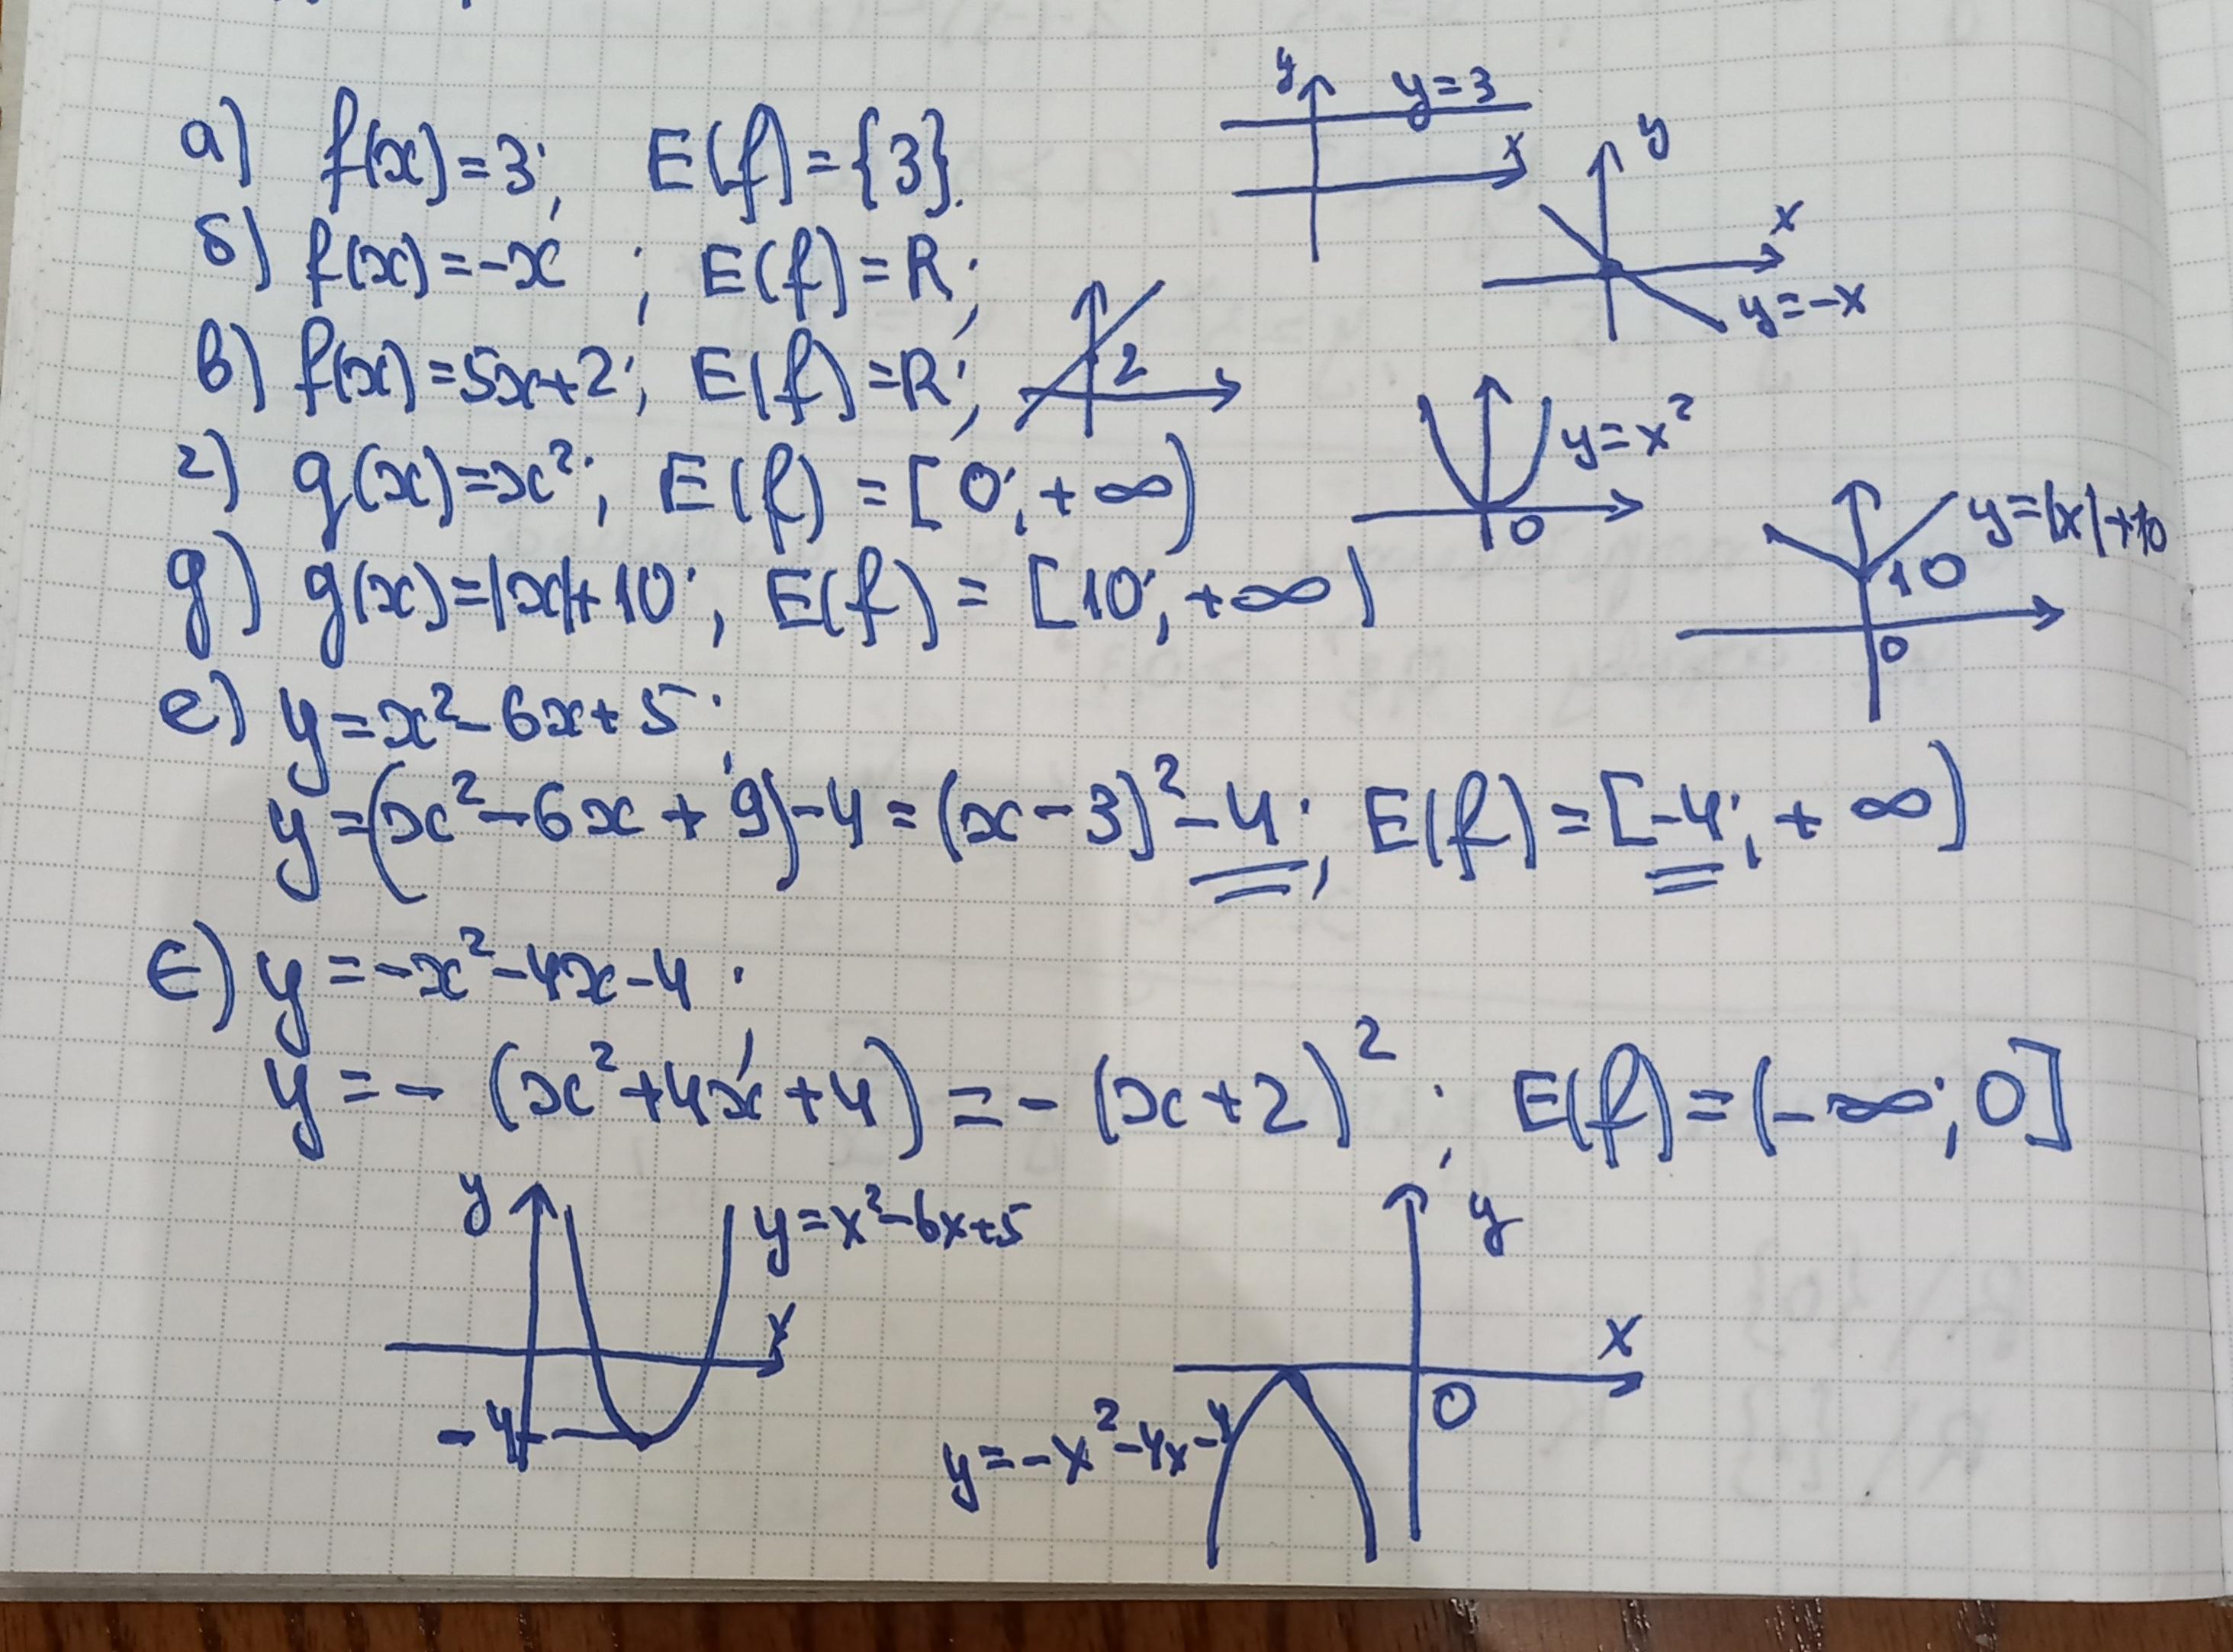 а) f(x)=3; E(f)={3}.
y
y=3
x
б) f(x)=-x; E(f)=R;
y
x
y=-x
в) f(x)=5x+2; E(f)=R;
2
г) g(x)=x²; E(f)=[0;+∞)
y=x²
0
g) g(x)=|x|+10; E(f)=[10;+∞)
y=|x|+10
10
0
е) y=x²-6x+5;
y=(x²-6x+9)-4=(x-3)²-4; E(f)=[-4;+∞)
є) y=-x²-4x-4;
y=-(x²+4x+4)=-(x+2)²; E(f)=(-∞;0]
y
y=x²-6x+5
x
-4
y
x
0
y=-x²-4x-4